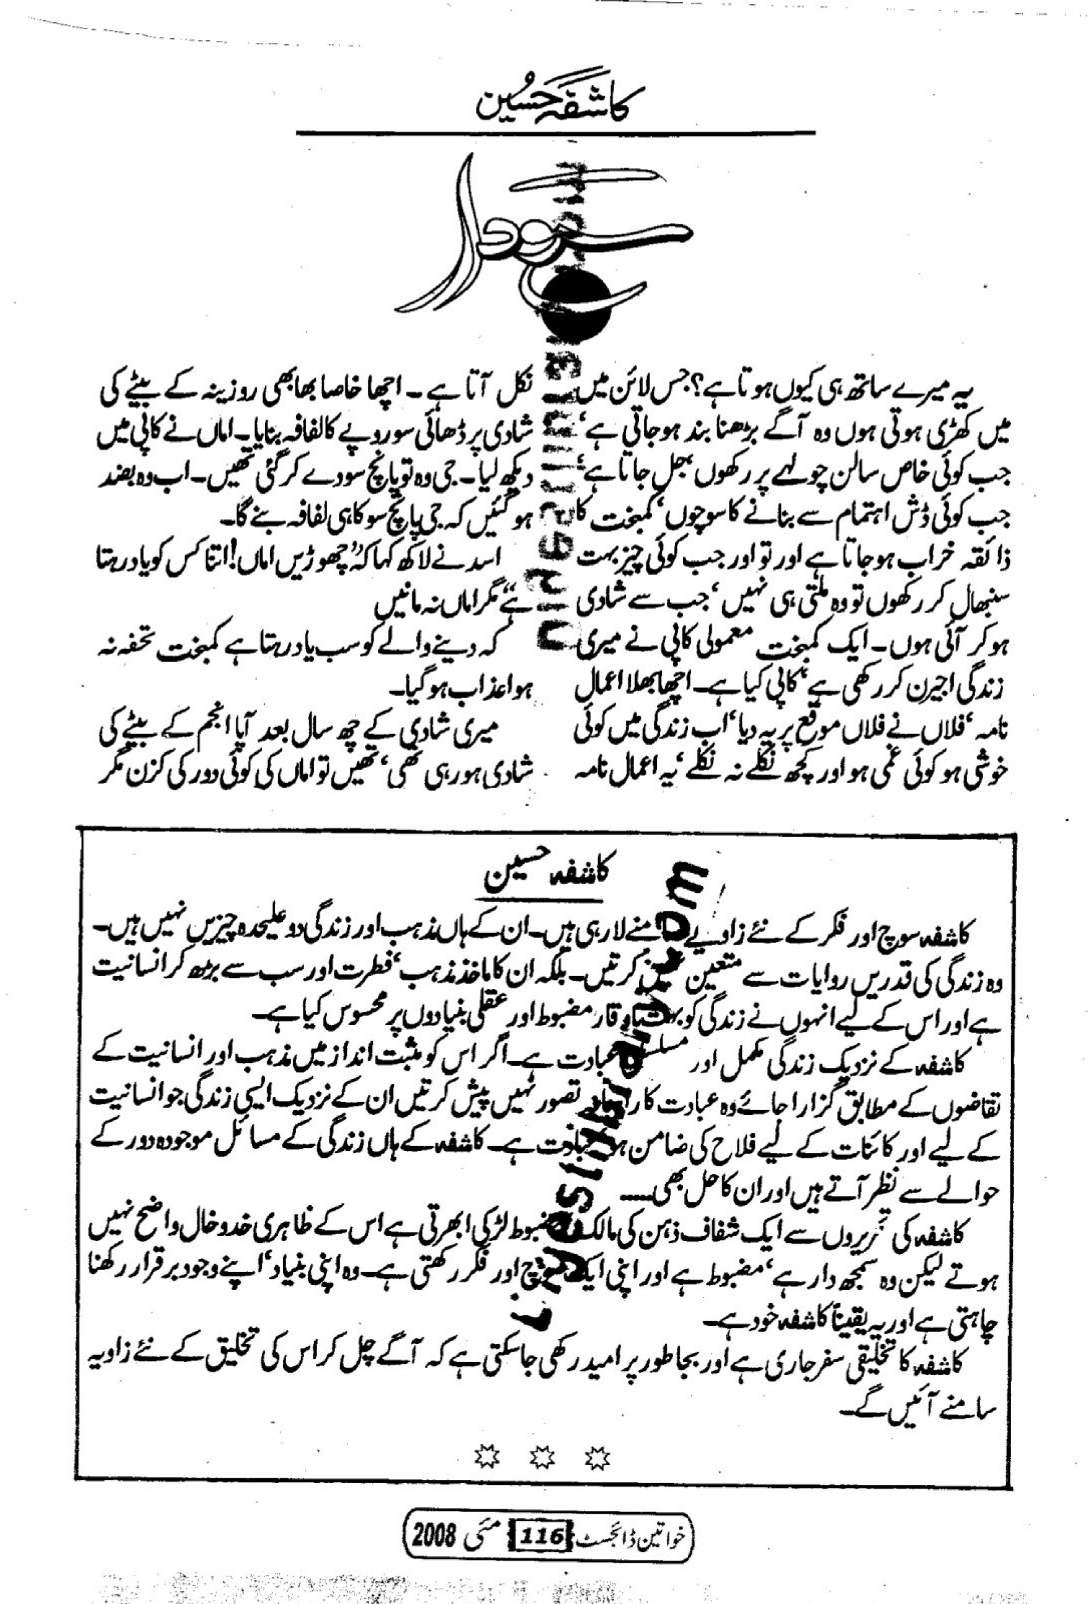 کاشفہ حسین
یہ میرے ساتھ ہی کیوں ہوتا ہے؟ جس لائن میں
میں کھڑی ہوتی ہوں وہ آگے بڑھنا بند ہو جاتی ہے‘
جب کوئی خاص سالن چولہے پر رکھوں جل جاتا ہے‘
جب کوئی ڈش اہتمام سے بنانے کا سوچوں‘ کمبخت کا
ذائقہ خراب ہو جاتا ہے اور تو اور جب کوئی چیز بہت
سنبھال کر رکھوں تو وہ ملتی ہی نہیں‘ جب سے شادی
ہو کر آئی ہوں۔ ایک کمبخت معمولی کاپی نے میری
زندگی اجیرن کر رکھی ہے‘ کاپی کیا ہے۔ اچھا بھلا اعمال
نامہ‘ فلاں نے فلاں موقع پر یہ دیا‘ اب زندگی میں کوئی
خوشی ہو کوئی غمی ہو اور کچھ نکلے نہ نکلے‘ یہ اعمال نامہ
نکل آتا ہے۔ اچھا خاصا بھابھی روزینہ کے بیٹے کی
شادی پر ڈھائی سو روپے کا لفافہ بنایا۔ اماں نے کاپی میں
دیکھ لیا۔ جی وہ تو پانچ سو دے کر گئی تھیں۔ اب وہ بضد
ہو گئیں کہ جی پانچ سو کا ہی لفافہ بنے گا۔
اسد نے لاکھ کہا کہ ”چھوڑیں اماں! اتنا کس کو یاد رہتا
ہے“ مگر اماں نہ مانیں
کہ دینے والے کو سب یاد رہتا ہے کمبخت تحفہ نہ
ہوا عذاب ہو گیا۔
میری شادی کے چھ سال بعد آپا انجم کے بیٹے کی
شادی ہو رہی تھی‘ تھیں تو اماں کی کوئی دور کی کزن مگر
کاشفہ حسین
کاشفہ سوچ اور فکر کے نئے زاویے سامنے لا رہی ہیں۔ ان کے ہاں مذہب اور زندگی دو علیحدہ چیزیں نہیں ہیں۔
وہ زندگی کی قدریں روایات سے متعین نہیں کرتیں۔ بلکہ ان کا ماخذ مذہب‘ فطرت اور سب سے بڑھ کر انسانیت
ہے اور اس کے لیے انہوں نے زندگی کو بہت باوقار مضبوط اور عقلی بنیادوں پر محسوس کیا ہے۔
کاشفہ کے نزدیک زندگی مکمل اور مسلسل عبادت ہے۔ اگر اس کو مثبت انداز میں مذہب اور انسانیت کے
تقاضوں کے مطابق گزارا جائے وہ عبادت کا تصور نہیں پیش کرتیں ان کے نزدیک ایسی زندگی جو انسانیت
کے لیے اور کائنات کے لیے فلاح کی ضامن ہو عبادت ہے۔ کاشفہ کے ہاں زندگی کے مسائل موجودہ دور کے
حوالے سے نظر آتے ہیں اور ان کا حل بھی.....
کاشفہ کی تحریروں سے ایک شفاف ذہن کی مالک مضبوط لڑکی ابھرتی ہے اس کے ظاہری خدوخال واضح نہیں
ہوتے لیکن وہ سمجھ دار ہے‘ مضبوط ہے اور اپنی ایک سوچ اور فکر رکھتی ہے۔ وہ اپنی بنیاد‘ اپنے وجود برقرار رکھنا
چاہتی ہے اور یہ یقیناً کاشفہ خود ہے۔
کاشفہ کا تخلیقی سفر جاری ہے اور بجا طور پر امید رکھی جا سکتی ہے کہ آگے چل کر اس کی تخلیق کے نئے زاویہ
سامنے آئیں گے۔
خواتین ڈائجسٹ 116 مئی 2008